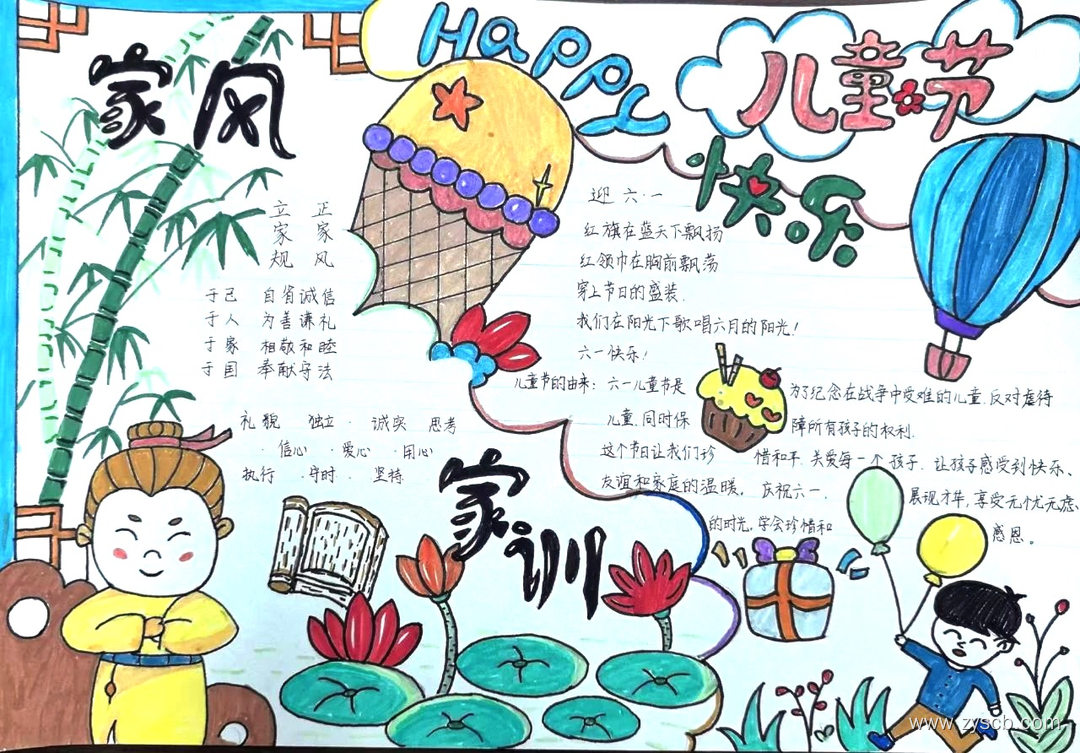 家风
Happy
儿童节
快乐
立 正
家 家
规 风
于己 自省诚信
于人 为善谦礼
于家 相敬和睦
于国 奉献守法
礼貌 独立 · 诚实 思考
· 信心 · 爱心 · 用心
执行 · 守时 · 坚持
家训
迎六·一
红旗在蓝天下飘扬
红领巾在胸前飘荡
穿上节日的盛装.
我们在阳光下歌唱六月的阳光!
六一快乐!
儿童节的由来: 六一儿童节是 为了纪念在战争中受难的儿童.反对虐待
儿童.同时保 障所有孩子的权利.
这个节日让我们珍 惜和平.关爱每一个孩子. 让孩子感受到快乐、
友谊和家庭的温暖. 庆祝六一. 展现才华,享受无忧无虑
的时光,学会珍惜和 感恩。
www.zyscb.com